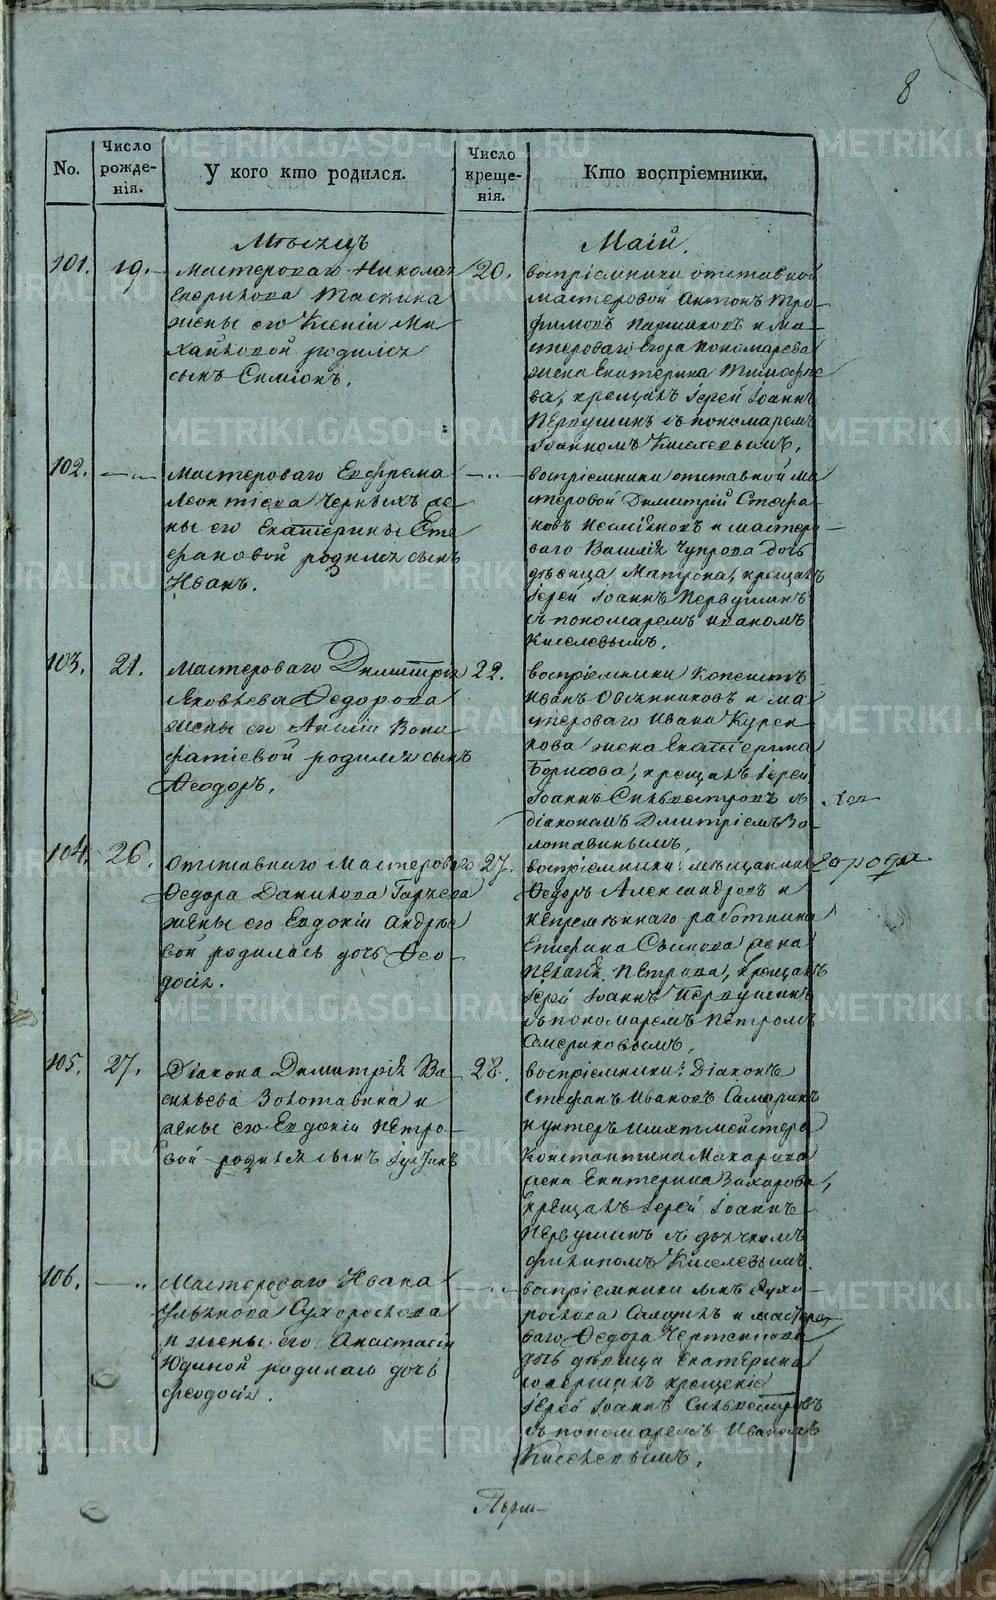 8
No.
Число рожде-нія.
У кого кто родился.
Число креще-нія.
Кто воспріемники.
Мѣсяцъ
Маій.
101.
19.
Мастероваго Николая
Таскина
жены его Ксеніи Ми
хайловой родился
сынъ Симіонъ.
20.
воспріемники отставной
мастеровой Антонъ Тро-
фимовъ и ма-
стероваго Егора Пономарева
жена Екатерина Тимофѣе
ва, крещалъ Іерей Іоаннъ
Первушинъ съ пономаремъ
Іоанномъ Киселевымъ.
102.
— „
Мастероваго Евфрема
Леонтіева Черныхъ же
ны его Екатерины Сте
фановой родился сынъ
Иванъ.
— „
воспріемники отставной ма
стеровой Димитрій Стефа
новъ и мастеро
ваго Василія Чупрова дочь
дѣвица Матрона, крещалъ
Іерей Іоаннъ Первушинъ
съ пономаремъ Иваномъ
Киселевымъ.
103.
21.
Мастероваго Димитрія
Яковлева Ѳедорова
жены его Вони
фатіевой родился сынъ
Ѳеодоръ.
22.
воспріемники
Иванъ Овчинниковъ и ма
стероваго Ивана
жена Екатерина
Борисова, крещалъ Іерей
Іоаннъ Сильвестровъ съ
діакономъ Димитріемъ Зо
лотавинымъ.
104.
26.
Отставнаго мастероваго
Ѳедора Данилова
жены его Евдокіи Андрѣе
вой родилась дочь Ѳео-
досія.
27.
воспріемники: мѣщанинъ
города
Ѳедоръ Александровъ и
непремѣннаго работника
жена
Пелагія Петрова, крещалъ
Іерей Іоаннъ Первушинъ
съ пономаремъ Петромъ
105.
27.
Діакона Димитрія Ва
сильева Золотавина и
жены его Евдокіи Петро-
вой родился сынъ
28.
воспріемники: Діаконъ
Стефанъ Ивановъ Самаринъ
и унтеръ шихтмейстера
Константина Макарова
жена Екатерина Захарова,
крещалъ Іерей Іоаннъ
Первушинъ съ дьячкомъ
Филипомъ Киселевымъ.
106.
— „
Мастероваго Ивана
Ульянова Сухороскова
и жены его Анастасіи
Юдиной родилась дочь
Феодосія.
— „
воспріемники сынъ Сухо
роскова и мастеро
ваго Ѳедора
дочь дѣвица Екатерина
совершалъ крещеніе
Іерей Іоаннъ Сильвестровъ
съ пономаремъ Иваномъ
Киселевымъ.
METRIKI.GASO-URAL.RU